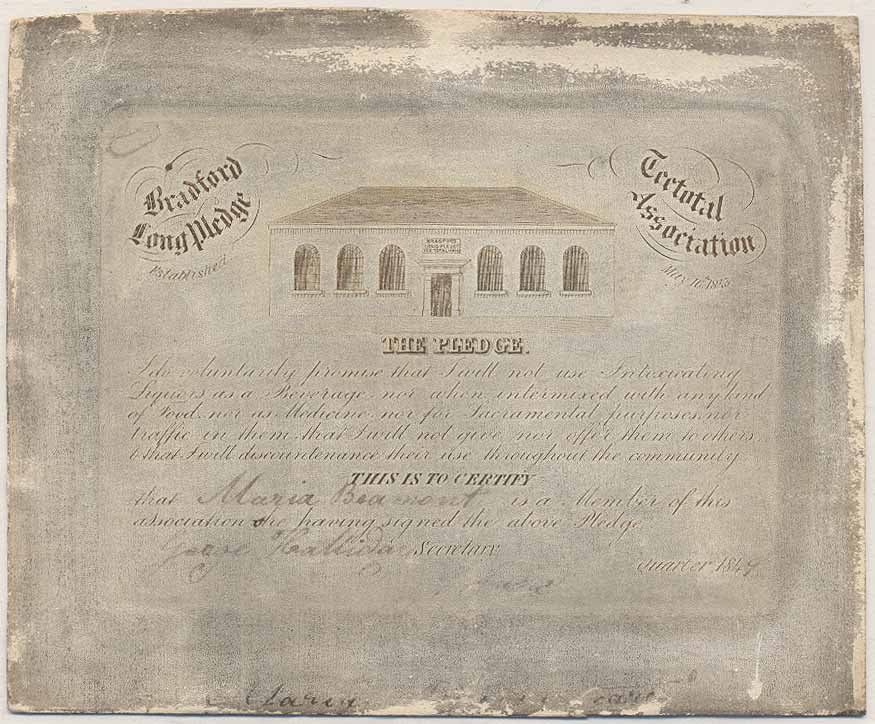 Bradford
Long Pledge
Established
Teetotal
Association
May 16th
BRADFORD
LONG PLEDGE
TEETOTAL
THE PLEDGE.
I do voluntarily promise that I will not use Intoxicating
Liquors as a Beverage, nor when intermixed with any kind
of Food, nor as Medicine, nor for Sacramental purposes, nor
traffic in them, that I will not give, nor offer them to others,
& that I will discountenance their use throughout the community
THIS IS TO CERTIFY
that Maria Beamont is a Member of this
association she having signed the above Pledge
George Halliday Secretary
quarter 1849
Maria